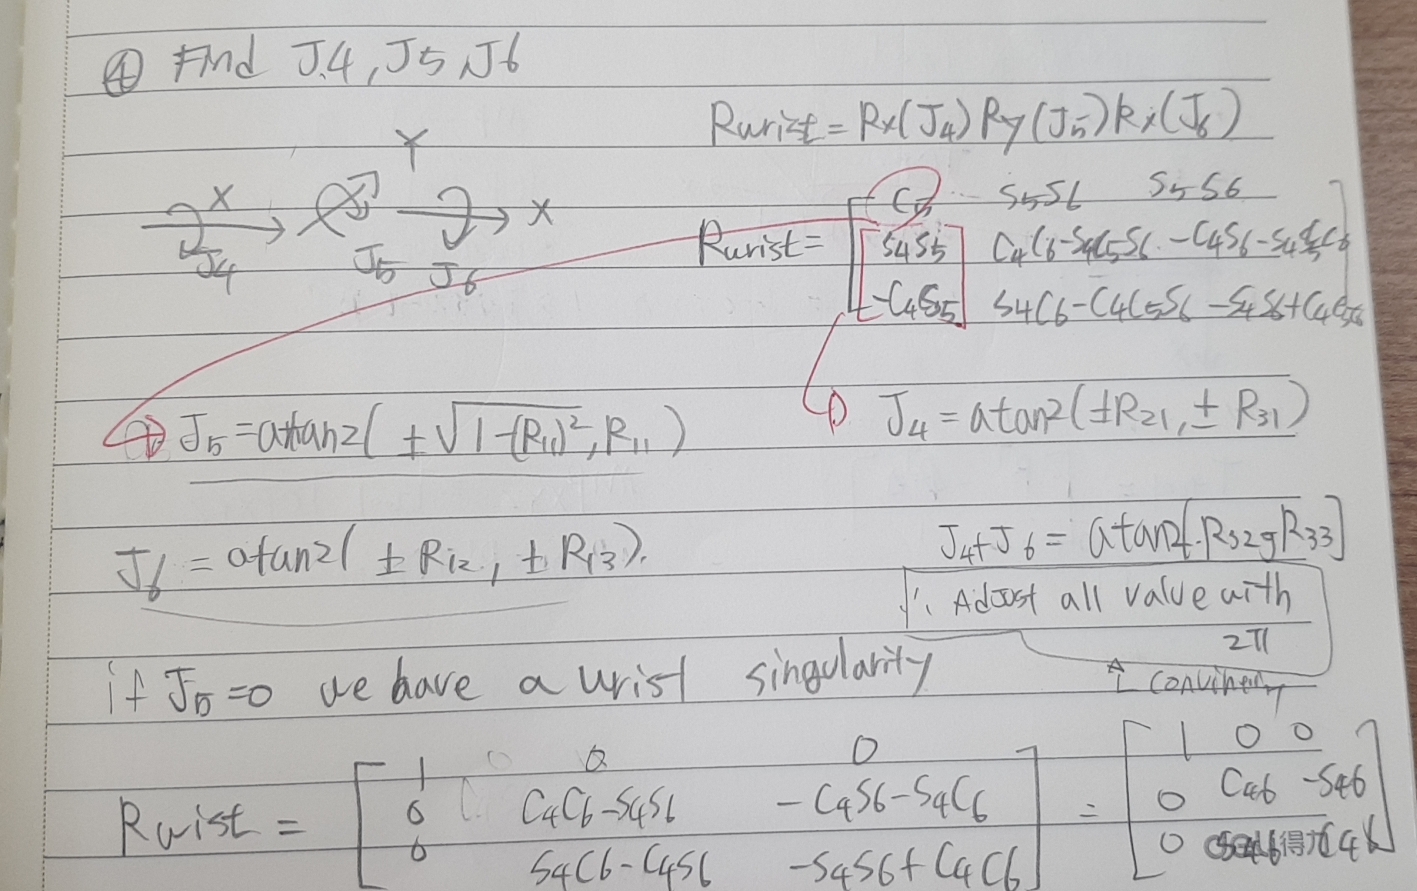 ④ Find J4, J5, J6
Rwrist = Rx(J4) Ry(J5) Rx(J6)
Y
X
X
J4
J5
J6
Rwrist =
C5 S5S6 S5S6
S4S5 C4C6-S4C5S6 -C4S6-S4C5C6
-C4S5 S4C6-C4C5S6 -S4S6+C4C5C6
J5 = atan2( ±√1-(R11)², R11 )
J4 = atan2(±R21, ± R31)
J6 = atan2( ±R12, ±R13).
J4+J6 = atan2[R32, R33]
Adjust all value with
2π
if J5=0 we have a wrist singularity
Rwist =
1 0 0
0 C4C6-S4S6 -C4S6-S4C6
0 S4C6-C4S6 -S4S6+C4C6
=
1 0 0
0 C46 -S46
0 得 C46